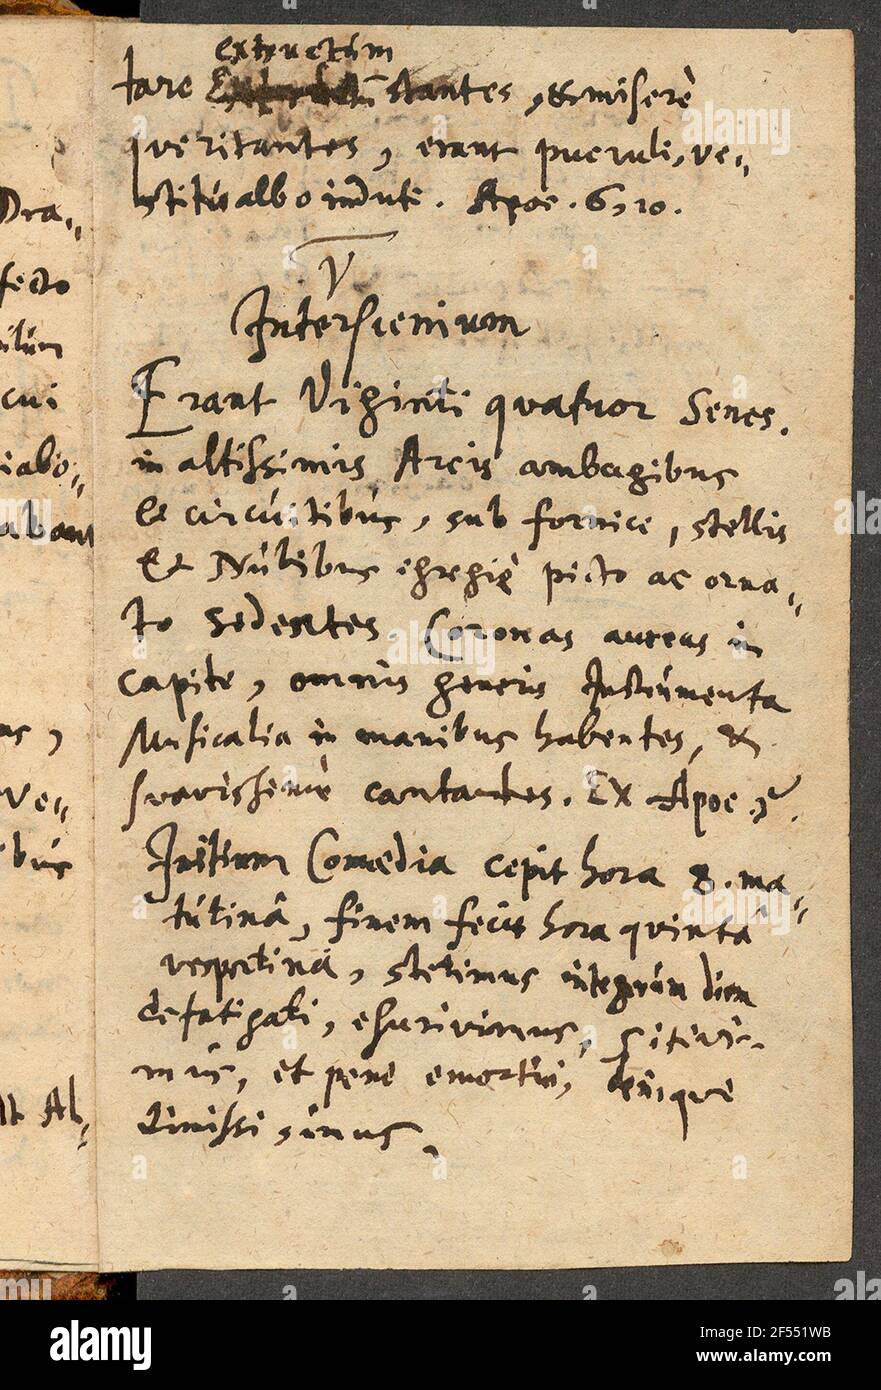 extructum
tare stantes, & miserè
queritantes, erant pueruli, ve=
stitu albo induti. Apoc. 6, 10.
V
Interscenium
Erant Viginti quatuor Senes.
in altissimis Arcis ambagibus
& circúitibús, sub fornice, stellis
& Núbibus egregiè picto ac orna=
to sedentes. Coronas aureas in
capite, omnis generis Instrúmenta
Musicalia in manibus habentes, &
suavissimè cantantes. Ex Apoc.
Initium Comœdia cepit hora 8. ma=
tútinâ, finem fecit hora quintâ
vespertinâ, stetimus integrúm diem
defatigati, esurivimus, sitivi=
mús, et penè emortui, deniqúe
dimissi súmus.
Dra=
fecto
cui
iabo=
abant
ve=
bús
it Ab=
alamy
Image ID: 2F551WB
www.alamy.com